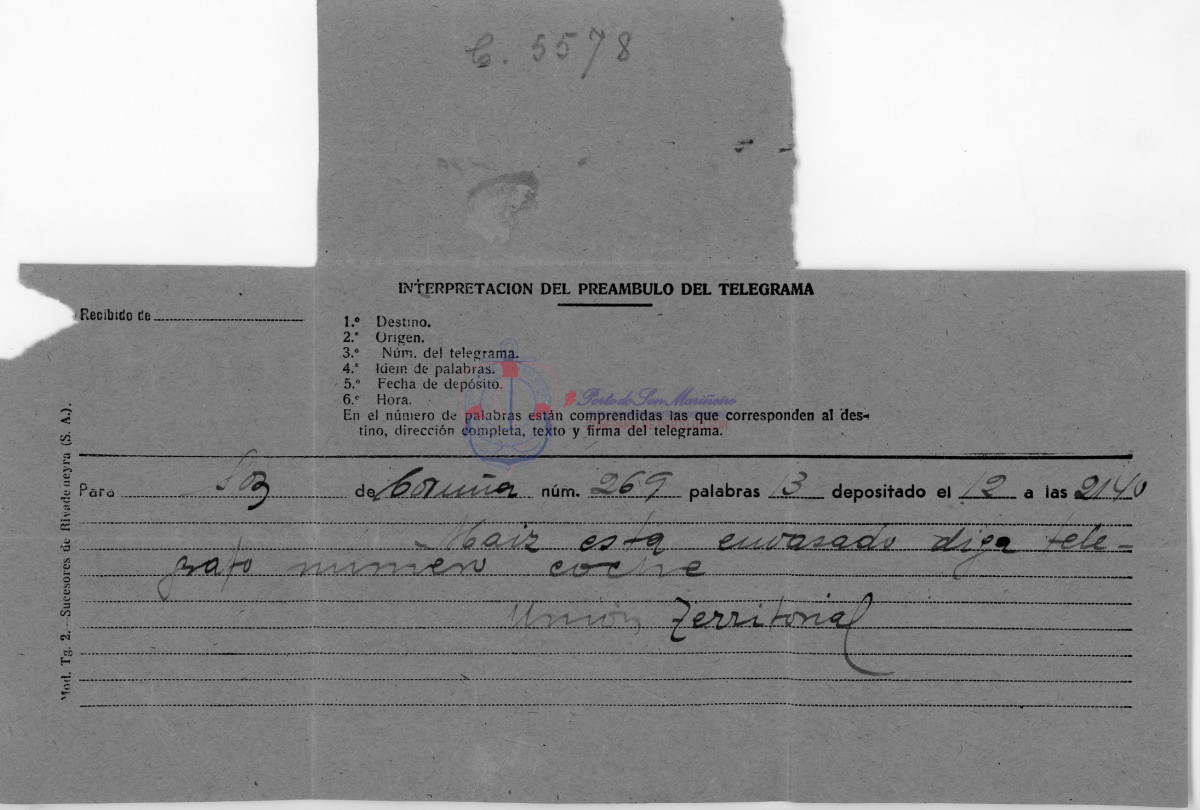 C. 5578
INTERPRETACION DEL PREAMBULO DEL TELEGRAMA
Recibido de
1.º Destino.
2.º Origen.
3.º Núm. del telegrama.
4.º Idem de palabras.
5.º Fecha de depósito.
6.º Hora.
En el número de palabras están comprendidas las que corresponden al des-
tino, dirección completa, texto y firma del telegrama.
Porto do Son Mariñeiro
Mod. Tg. 2.-Sucesores de Rivadeneyra (S. A.).
Para de Coruña núm. 269 palabras 13 depositado el 12 a las 2140
Maiz esta envasado diga tele-
grafo numero coche
Unión Territorial